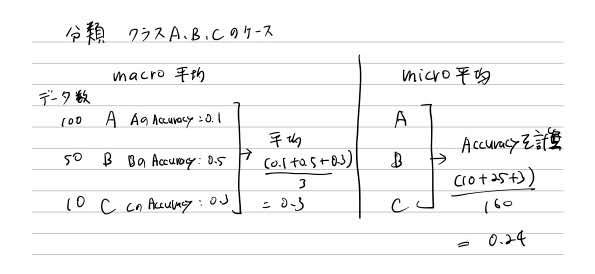 分類 クラスA、B、Cのケース
macro 平均
データ数
100 A AのAccuracy:0.1
50 B BのAccuracy:0.5
10 C CのAccuracy:0.3
平均
(0.1+0.5+0.3)
3
= 0.3
micro平均
A
B
C
Accuracyを計算
(10+25+3)
160
= 0.24